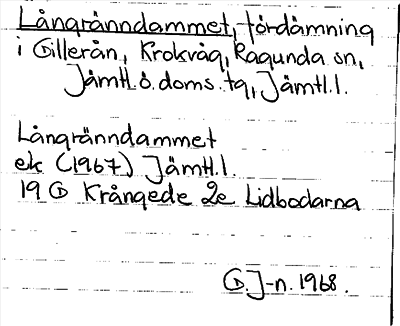 Långrånndammet, fördämning
i Gillerån, Krokvåg, Ragunda sn,
Jämtl.ö.doms.tg, Jämtl.l.
Långränndammet
ek (1967) Jämtl.l.
19 G Krångede 2e Lidbodarna
G.J-n. 1968.